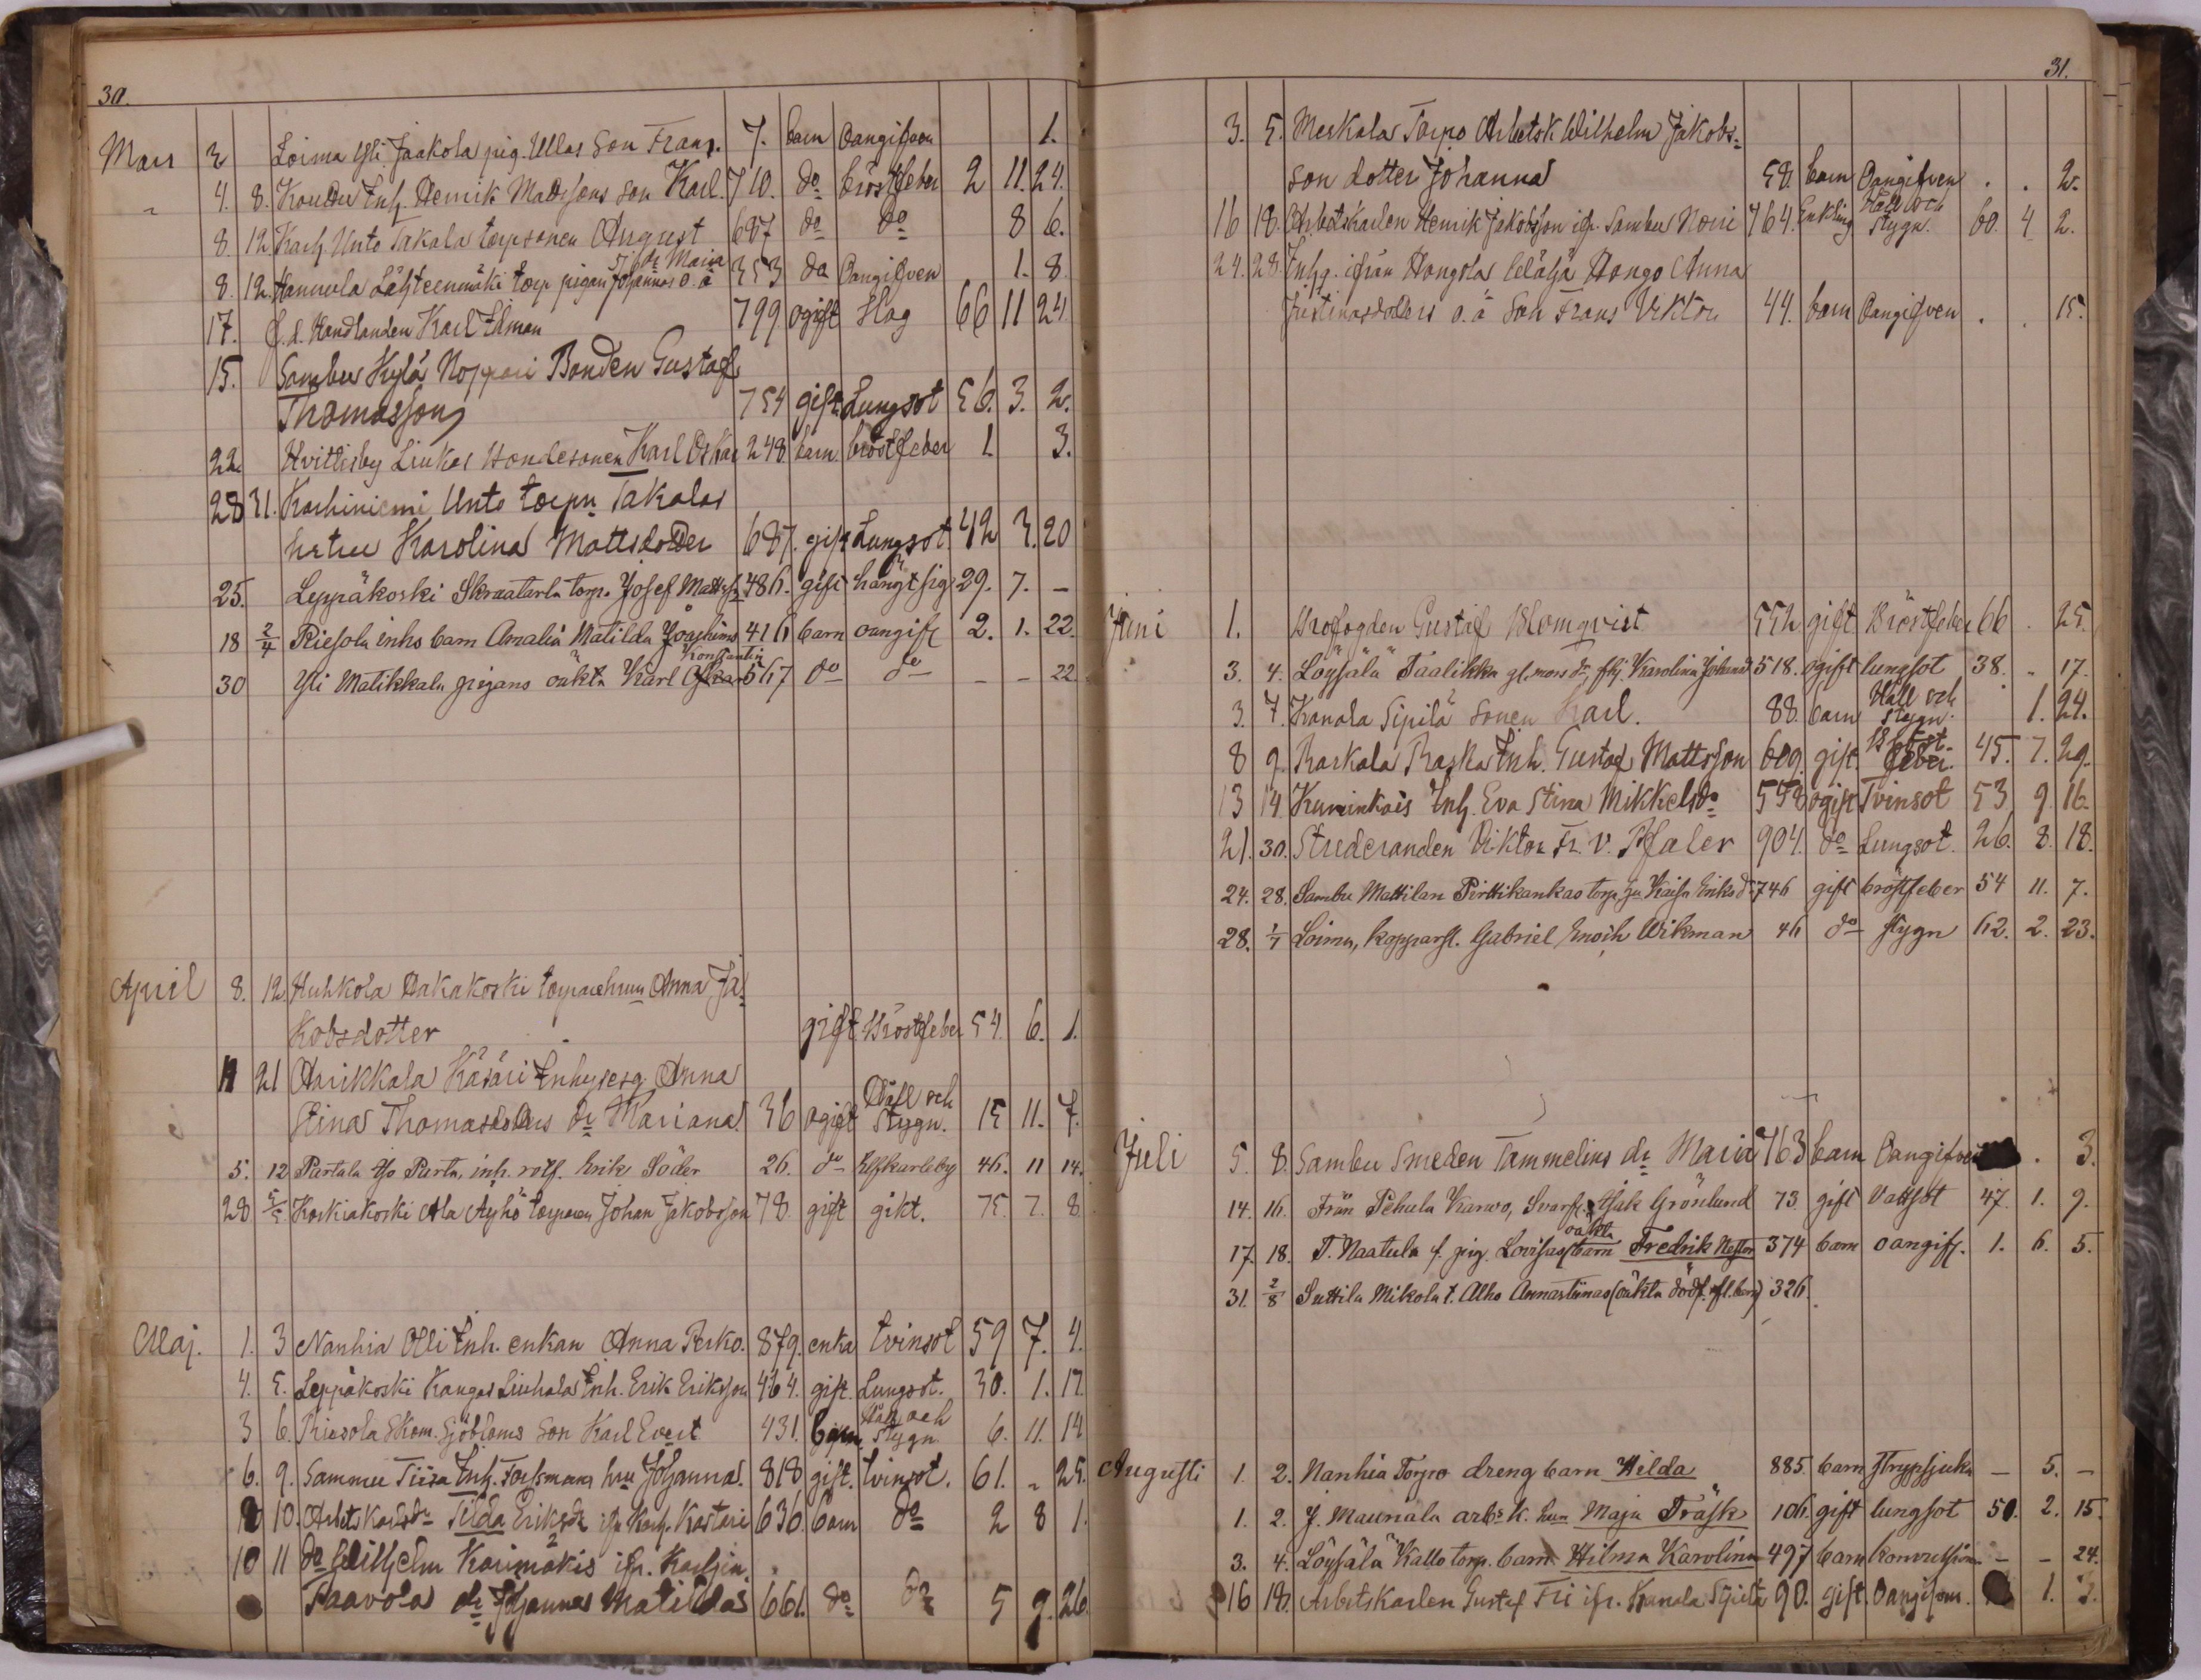 30.
Mars 2 Loima Yli Jaakola pig. Ullas Son Frans. 7. barn Oangifven 1.
" 4. 8. Inh. Henrik Mattssons son Karl. 710. do bröstfeber 2 11. 24.
8. 12. Karh. Unto Takala torpsonen August 687 do do 8 6.
Maria
8. 12. Hannula Lähteenmäki torp pigan Johannas o.ä 353 do Oangifven 1. 8.
17. f.d. Handlanden Karl Ekman 799 ogift Slag 66 11 24
15. Sambu Kylä Noppari Bonden Gustaf
Thomasson 754 gift Lungsot 56. 3. 2.
22 Hvittisby Liukas Bondesonen Karl Oskar 248 barn. bröstfeber 1. 3.
28 31. Karhiniemi Unto torpn Takalas
hustru Karolina Mattsdotter 687. gift Lungsot 42 3. 20
25. Leppäkoski Skraatarla torp. Josef Mattss. 486. gift hängt sig 29. 7. –
18 2/4 Riesola inhs barn Amalia Matilda Joachims 416 barn oangift 2. 1. 22.
Konstantin
30 Yli Matikkala pigans oäkta Karl Oskar 567 do do – – 22
April 8. 12. Huhkola Hakakoski torparehrun Anna Ja=
kobsdotter gift Bröstfeber 54. 6. 1.
11 21 Aarikkala Käsäri Inhysesq Anna
Håll och
Stina Thomasdotters dr Mariana. 36 ogift Stygn. 15 11. 7.
5. 12 Partala Yso Perta, inh. rotf. Erik Söder 26. do Elfkarleby 46. 11 14.
28 5/5 Koskiakoski Ala Äyhö torparen Johan Jakobsson 78 gift gikt. 75. 7. 8
Maj. 1. 3 Nanhia Olli Inh. enkan Anna Perko. 879. enka tvinsot 59 7. 4.
4. 5. Leppäkoski Kangas Liuhala Inh. Erik Eriksson 464. gift. Lungsot. 30. 1. 17
Håll och
3 6. Riesola Skom. Sjöbloms Son Karl Evert 431. barn Stygn 6. 11. 14
6. 9. Sammu Tiisa Inh. Forssmans hru Johanna. 818 gift. tvinsot. 61. " 25.
10. Arbetskarlsdr Tilda Eriksdr ifr. Karh. Kastari 636. barn do 2 8 1.
10 11 do Wilhelm Karimäkis ifr. Karhin.
Paavola dr Johannas Matildas 661. do do 5 9. 26.
31.
3. 5. Meskala Torpo Arbetsk. Wilhelm Jakobs=
son dotter Johanna 58. barn Oangifven . . 2.
Håll och
16 18. Arbetskarlen Henrik Jakobsson ifr. Sambu Noiri 764. Enkling Stygn. 60. 4 2.
24. 28. Inhq. ifrån Hongola Hongo Anna
Justinasdotters o.ä Son Frans Viktor 44. barn Oangifven . . 15.
Juni 1. Brofogden Gustaf Blomqvist 552 gift Bröstfeber 66 . 25.
3. 4. Löysälä Taalikka gl. mors dr, fhj. Karolina Johansd 518. ogift lungsot 38. " 17.
Håll och
3. 7. Kanala Sipilä sonen Karl. 88. barn stygn. 1. 24.
Bröst-
8 9. Raskala Raska Inh. Gustaf Mattsson 609. gift. feber. 45. 7. 29.
13 14. Kuninkais Inh. Eva Stina Mikkelsdr 558 ogift Tvinsot 53 9 16
21. 30. Studeranden Viktor Fr. v. Pfaler 904. do Lungsot. 26. 8. 18.
24. 28. Sambu Mattilan Pirttikankas torp. Kaisa Eriksdr 746 gift bröstfeber 54 11. 7.
28. 1/7 Loima, kopparsl. Gabriel Enoch Wikman 46 do stygn 62. 2. 23.
Juli 5. 8. Sambu Smeden Tammelins dr Maria 763 barn Oangifven . 3.
14. 16. Från Pehula Karwo, Svarfv. Isak Grönlund 73 gift Vattsot 47. 1. 9.
oäkta
17. 18. T. Naatula f. pig. Lovisas barn Fredrik Nestor 374 barn oangif. 1. 6. 5.
31. 2/8 Suttila Mikola t. Alho Annastinas (oäkta dödf. fl. barn) 326.
Augusti 1. 2. Nanhia Torpo dreng barn Hilda 885. barn Strypsjuka – 5. –
1. 2. J. Maunala arb. k. hun Maja Träsk 106. gift lungsot 50. 2. 15.
3. 4. Löysälä Kallo torp. barn Hilma Karolina 497 barn konvulsion – – 24.
16 18. Arbetskarlen Gustaf Fri ifr. Kanala Sipilä 90. gift. Oangifven. 1. 3.